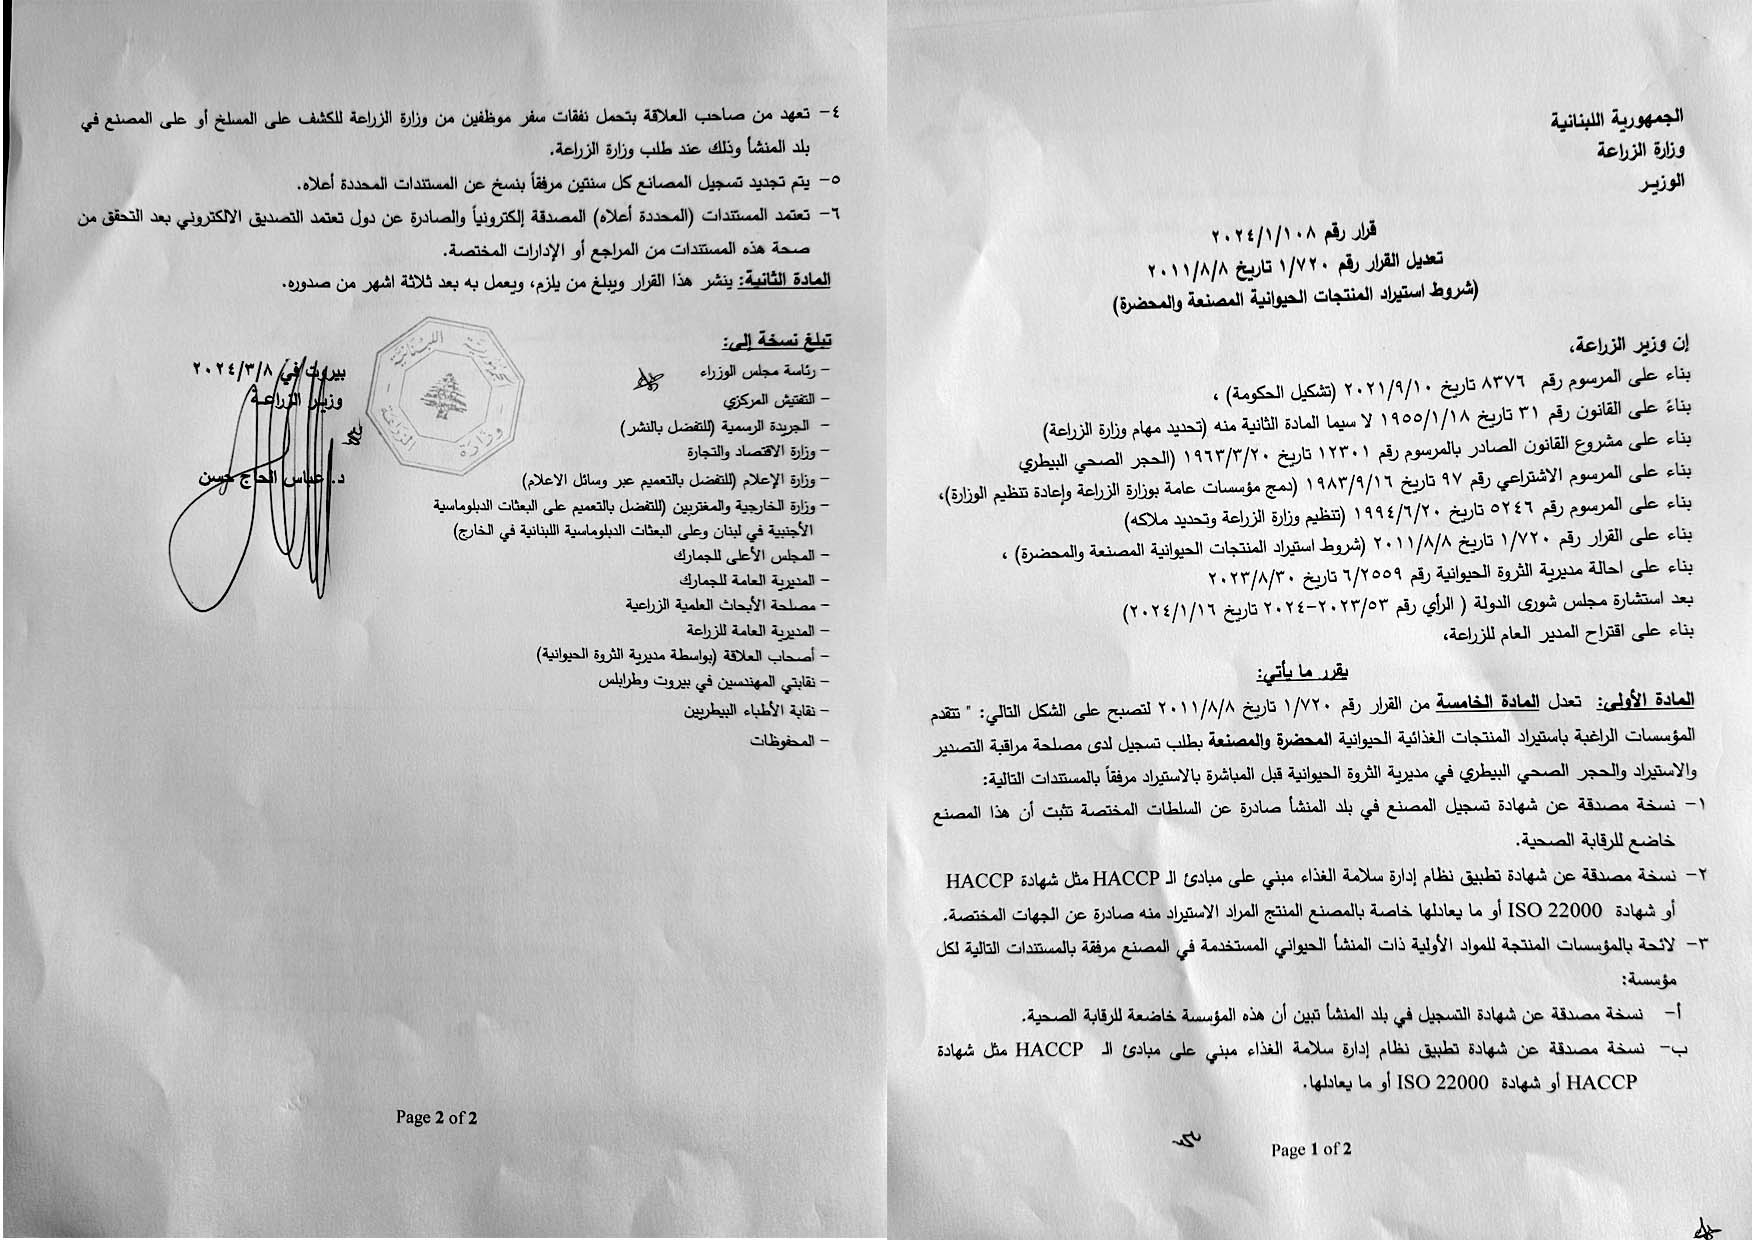 الجمهورية اللبنانية
وزارة الزراعة
الوزير
قرار رقم ٢٠٢٤/١/١٠٨
تعديل القرار رقم ١/٧٢٠ تاريخ ٢٠١١/٨/٨
(شروط استيراد المنتجات الحيوانية المصنعة والمحضرة)
إن وزير الزراعة،
بناء على المرسوم رقم ٨٣٧٦ تاريخ ٢٠٢١/٩/١٠ (تشكيل الحكومة) ،
بناءً على القانون رقم ٣١ تاريخ ١٩٥٥/١/١٨ لا سيما المادة الثانية منه (تحديد مهام وزارة الزراعة)
بناء على مشروع القانون الصادر بالمرسوم رقم ١٢٣٠١ تاريخ ١٩٦٣/٣/٢٠ (الحجر الصحي البيطري
بناء على المرسوم الاشتراعي رقم ٩٧ تاريخ ١٩٨٣/٩/١٦ (دمج مؤسسات عامة بوزارة الزراعة وإعادة تنظيم الوزارة)،
بناء على المرسوم رقم ٥٢٤٦ تاريخ ١٩٩٤/٦/٢٠ (تنظيم وزارة الزراعة وتحديد ملاكه)
بناء على القرار رقم ١/٧٢٠ تاريخ ٢٠١١/٨/٨ (شروط استيراد المنتجات الحيوانية المصنعة والمحضرة) ،
بناء على احالة مديرية الثروة الحيوانية رقم ٦/٢٥٥٩ تاريخ ٢٠٢٣/٨/٣٠
بعد استشارة مجلس شورى الدولة ( الرأي رقم ٢٠٢٣/٥٣-٢٠٢٤ تاريخ ٢٠٢٤/١/١٦)
بناء على اقتراح المدير العام للزراعة،
يقرر ما يأتي:
المادة الأولى: تعدل المادة الخامسة من القرار رقم ١/٧٢٠ تاريخ ٢٠١١/٨/٨ لتصبح على الشكل التالي: " تتقدم
المؤسسات الراغبة باستيراد المنتجات الغذائية الحيوانية المحضرة والمصنعة بطلب تسجيل لدى مصلحة مراقبة التصدير
والاستيراد والحجر الصحي البيطري في مديرية الثروة الحيوانية قبل المباشرة بالاستيراد مرفقاً بالمستندات التالية:
١- نسخة مصدقة عن شهادة تسجيل المصنع في بلد المنشأ صادرة عن السلطات المختصة تثبت أن هذا المصنع
خاضع للرقابة الصحية.
٢- نسخة مصدقة عن شهادة تطبيق نظام إدارة سلامة الغذاء مبني على مبادئ الـ HACCP مثل شهادة HACCP
أو شهادة ISO 22000 أو ما يعادلها خاصة بالمصنع المنتج المراد الاستيراد منه صادرة عن الجهات المختصة.
٣- لائحة بالمؤسسات المنتجة للمواد الأولية ذات المنشأ الحيواني المستخدمة في المصنع مرفقة بالمستندات التالية لكل
مؤسسة:
أ- نسخة مصدقة عن شهادة التسجيل في بلد المنشأ تبين أن هذه المؤسسة خاضعة للرقابة الصحية.
ب- نسخة مصدقة عن شهادة تطبيق نظام إدارة سلامة الغذاء مبني على مبادئ الـ HACCP مثل شهادة
HACCP أو شهادة ISO 22000 أو ما يعادلها.
Page 1 of 2
٤- تعهد من صاحب العلاقة بتحمل نفقات سفر موظفين من وزارة الزراعة للكشف على المسلخ أو على المصنع في
بلد المنشأ وذلك عند طلب وزارة الزراعة.
٥- يتم تجديد تسجيل المصانع كل سنتين مرفقاً بنسخ عن المستندات المحددة أعلاه.
٦- تعتمد المستندات (المحددة أعلاه) المصدقة إلكترونياً والصادرة عن دول تعتمد التصديق الالكتروني بعد التحقق من
صحة هذه المستندات من المراجع أو الإدارات المختصة.
المادة الثانية: ينشر هذا القرار ويبلغ من يلزم، ويعمل به بعد ثلاثة اشهر من صدوره.
تبلغ نسخة إلى:
- رئاسة مجلس الوزراء
- التفتيش المركزي
- الجريدة الرسمية (للتفضل بالنشر)
- وزارة الاقتصاد والتجارة
- وزارة الإعلام (للتفضل بالتعميم عبر وسائل الاعلام)
- وزارة الخارجية والمغتربين (للتفضل بالتعميم على البعثات الدبلوماسية
الأجنبية في لبنان وعلى البعثات الدبلوماسية اللبنانية في الخارج)
- المجلس الأعلى للجمارك
- المديرية العامة للجمارك
- مصلحة الأبحاث العلمية الزراعية
- المديرية العامة للزراعة
- أصحاب العلاقة (بواسطة مديرية الثروة الحيوانية)
- نقابتي المهندسين في بيروت وطرابلس
- نقابة الأطباء البيطريين
- المحفوظات
الجمهورية اللبنانية
وزارة الزراعة
بيروت في ٢٠٢٤/٣/٨
وزير الزراعة
د. عباس الحاج حسن
Page 2 of 2